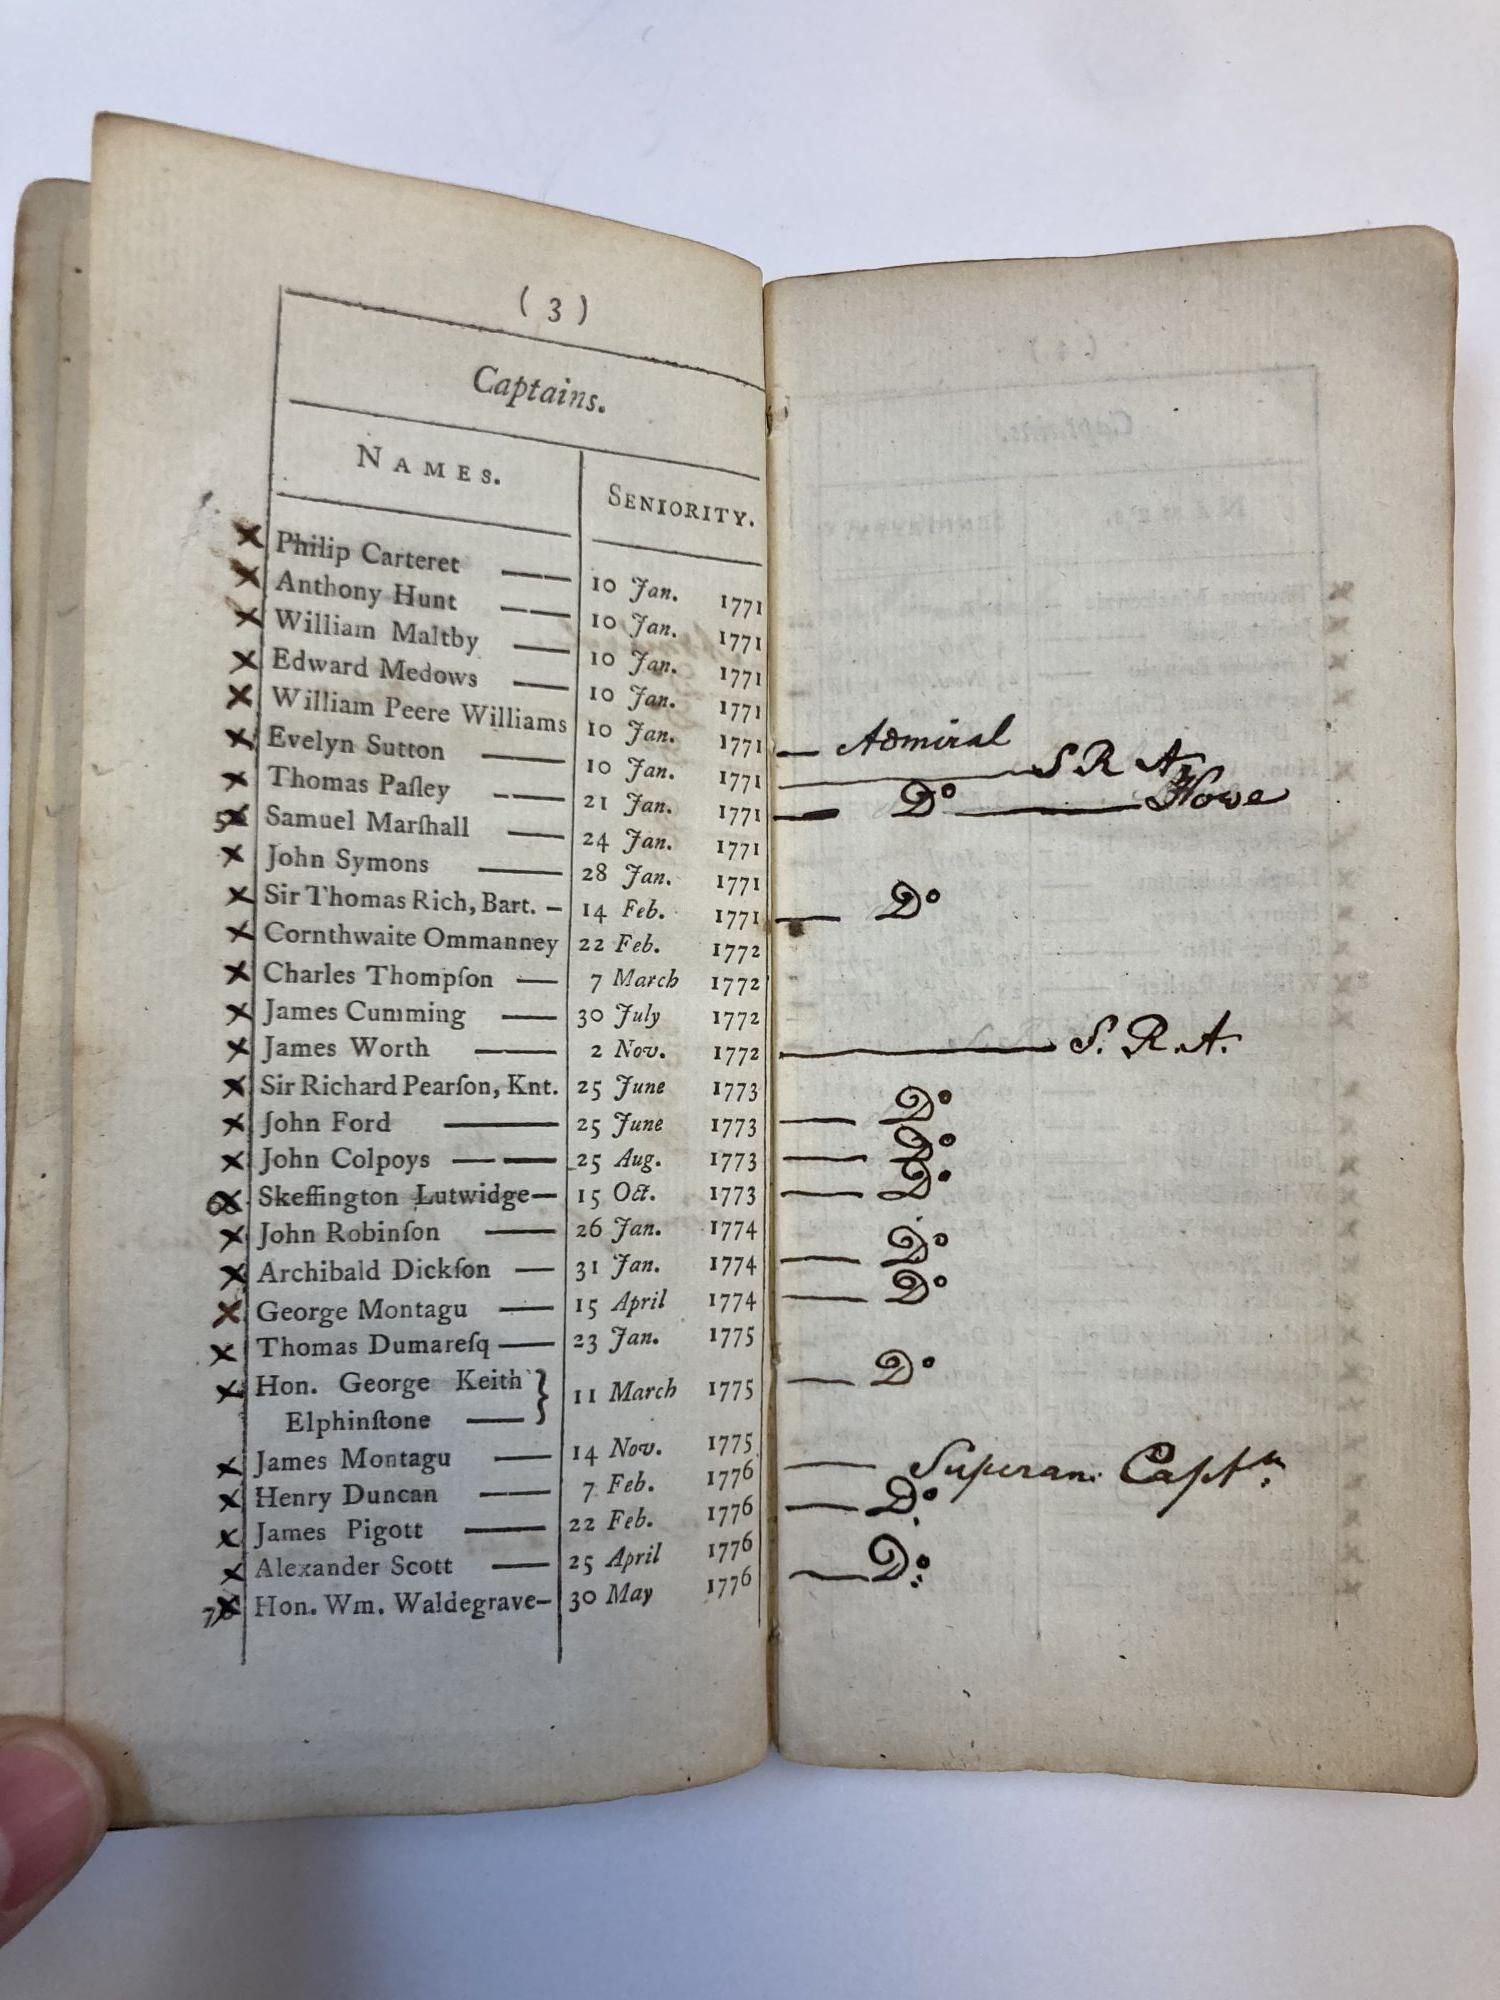 ( 3 )
Captains.
NAMES. SENIORITY.
× Philip Carteret —— 10 Jan. 1771
× Anthony Hunt —— 10 Jan. 1771
× William Maltby —— 10 Jan. 1771
× Edward Medows —— 10 Jan. 1771
× William Peere Williams 10 Jan. 1771
× Evelyn Sutton —— 10 Jan. 1771
× Thomas Paſley —— 21 Jan. 1771
× Samuel Marſhall —— 24 Jan. 1771
× John Symons —— 28 Jan. 1771
× Sir Thomas Rich, Bart. — 14 Feb. 1771
× Cornthwaite Ommanney 22 Feb. 1772
× Charles Thompſon — 7 March 1772
× James Cumming —— 30 July 1772
× James Worth —— 2 Nov. 1772
× Sir Richard Pearſon, Knt. 25 June 1773
× John Ford —— 25 June 1773
× John Colpoys —— 25 Aug. 1773
× Skeffington Lutwidge — 15 Oct. 1773
× John Robinſon —— 26 Jan. 1774
× Archibald Dickſon — 31 Jan. 1774
× George Montagu —— 15 April 1774
× Thomas Dumareſq — 23 Jan. 1775
× Hon. George Keith } 11 March 1775
Elphinſtone ——
× James Montagu —— 14 Nov. 1775
× Henry Duncan —— 7 Feb. 1776
× James Pigott —— 22 Feb. 1776
× Alexander Scott —— 25 April 1776
× Hon. Wm. Waldegrave — 30 May 1776
— Admiral
—— S R A
— Do —— Howe
— Do
—— S. R. A.
— Do
— Do
— Do
— Do
— Do
— Do
— Superan: Captn:
— Do
— Do: